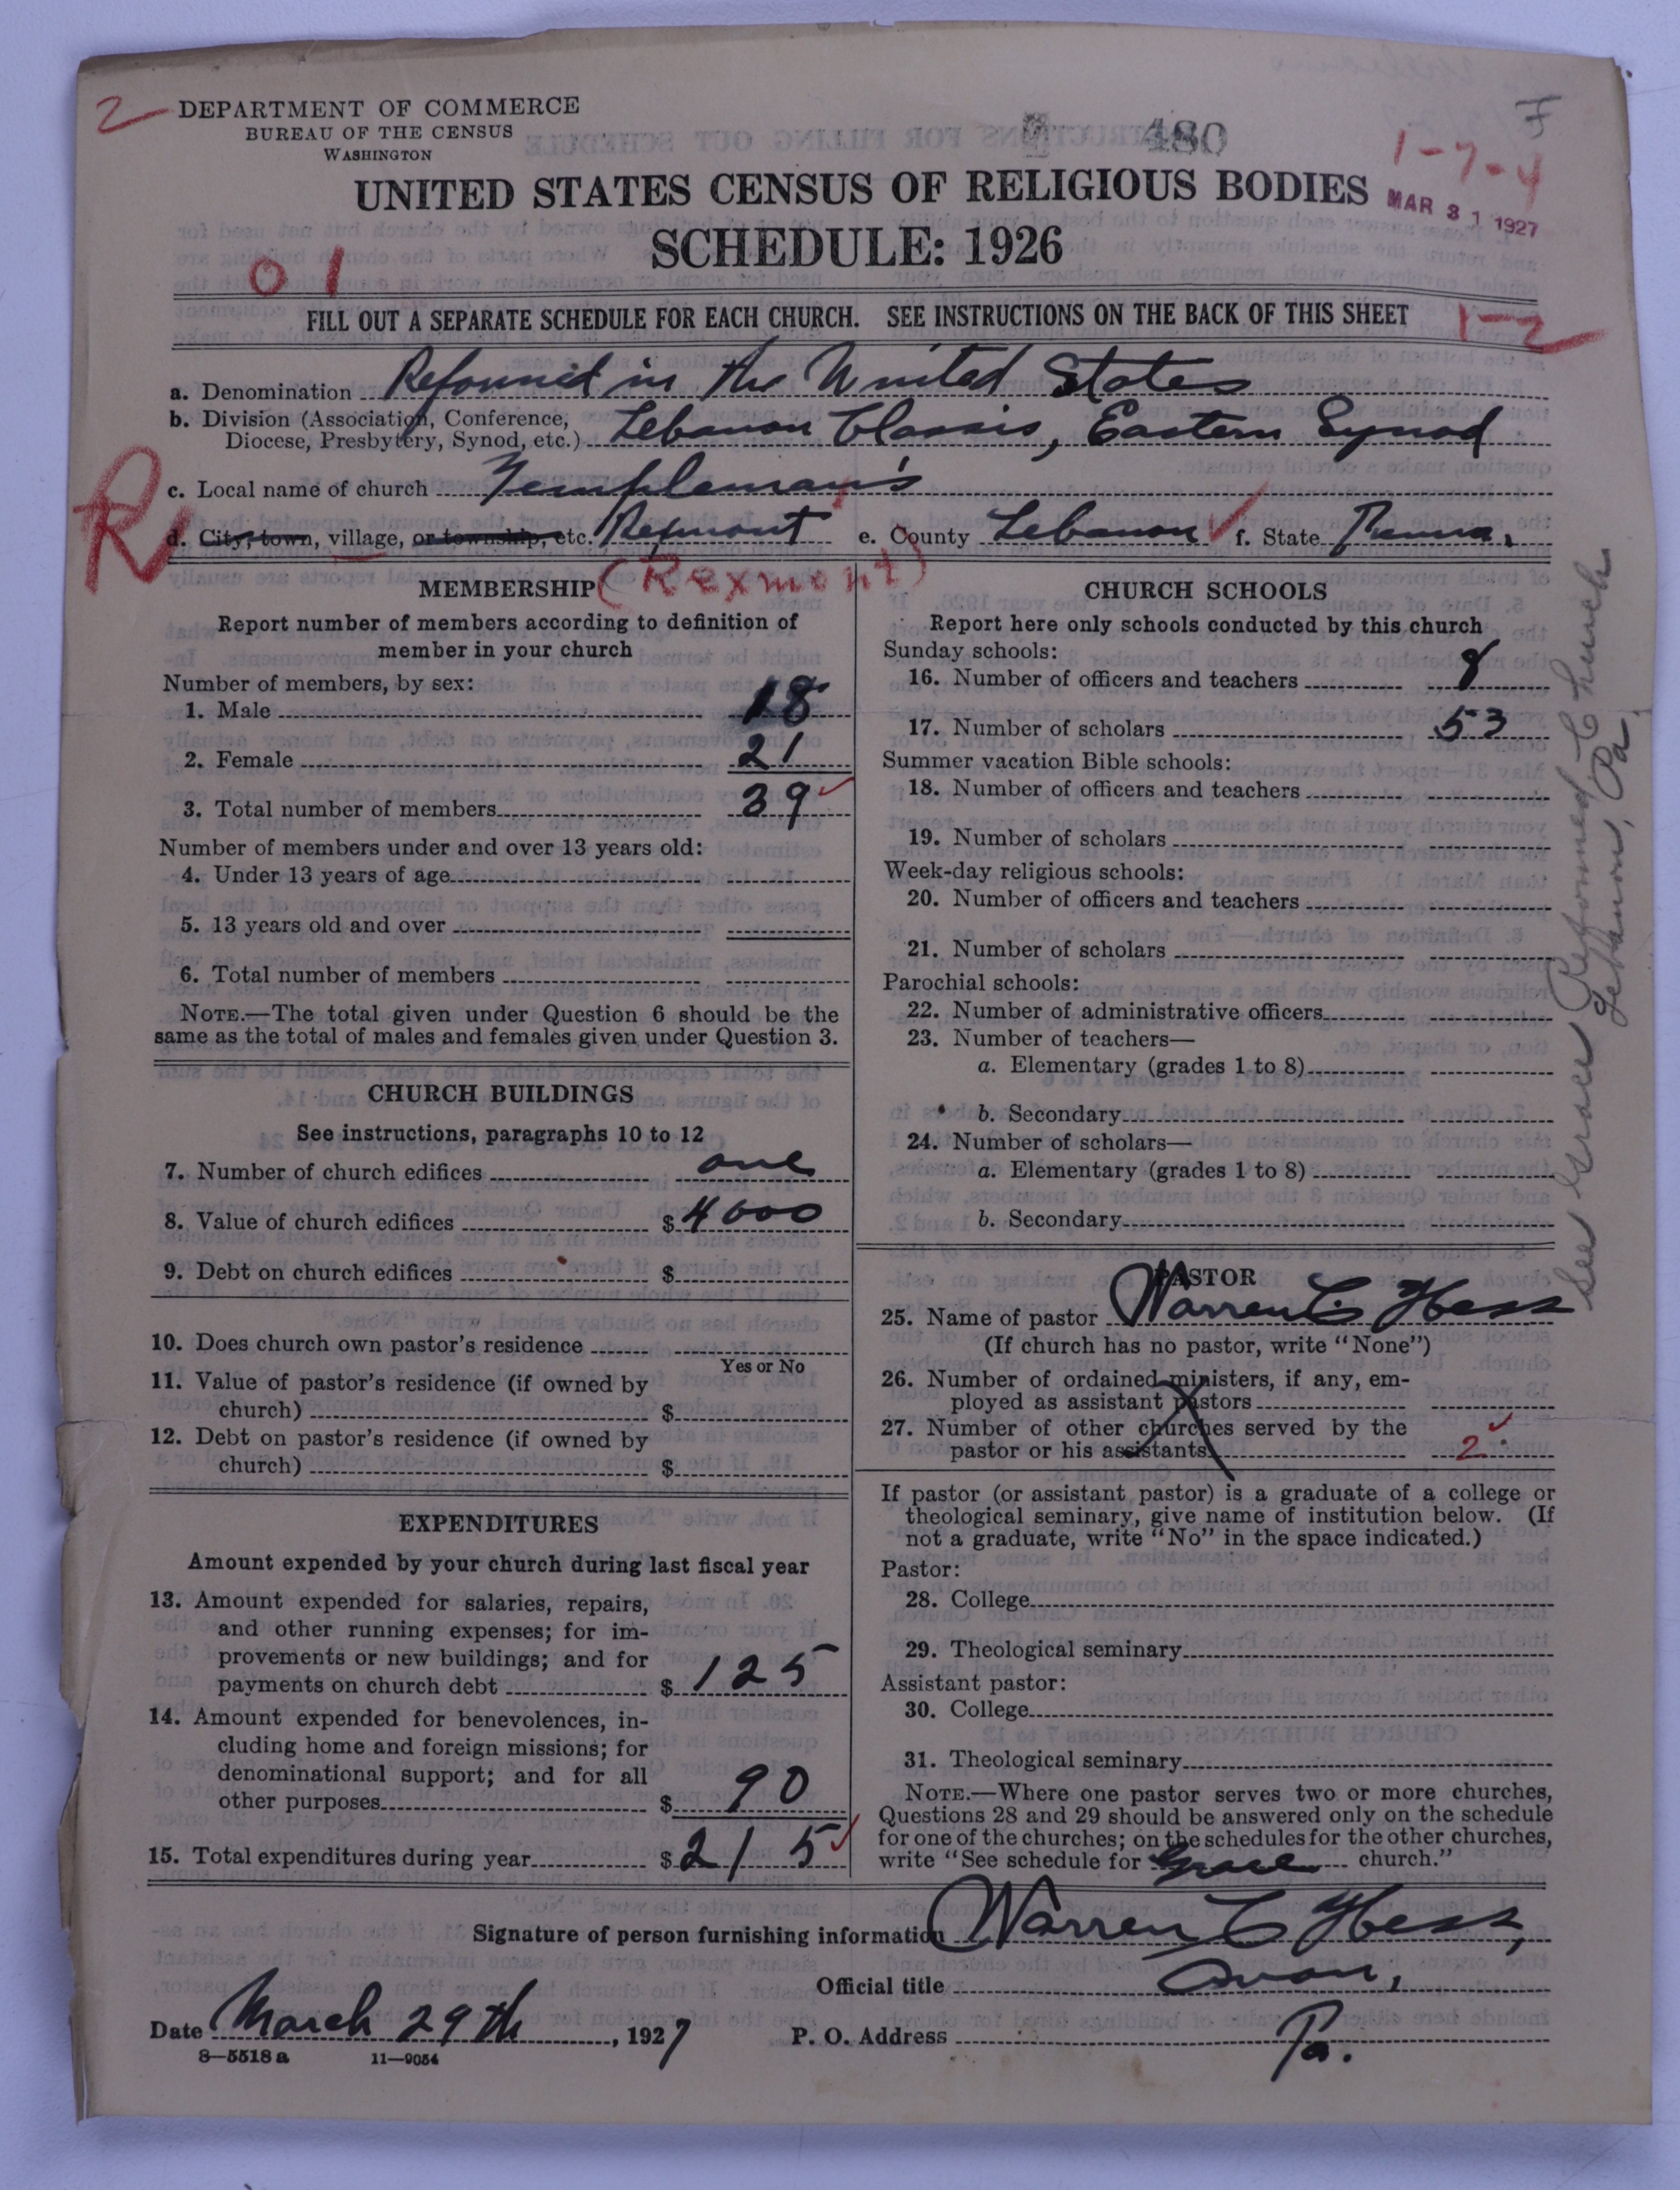 2
DEPARTMENT OF COMMERCE
BUREAU OF THE CENSUS
WASHINGTON
480
F
1-7-4
UNITED STATES CENSUS OF RELIGIOUS BODIES
MAR 31 1927
SCHEDULE: 1926
01
FILL OUT A SEPARATE SCHEDULE FOR EACH CHURCH. SEE INSTRUCTIONS ON THE BACK OF THIS SHEET
1-2
a. Denomination Reformed in the United States
b. Division (Association, Conference,
Diocese, Presbytery, Synod, etc.) Lebanon Classis, Eastern Synod
c. Local name of church Templeman's
R
d. City, town, village, or township, etc. Rexmont e. County Lebanon f. State Penna.
(Rexmont)
MEMBERSHIP
Report number of members according to definition of
member in your church
Number of members, by sex:
1. Male 18
2. Female 21
3. Total number of members 39
Number of members under and over 13 years old:
4. Under 13 years of age
5. 13 years old and over
6. Total number of members
NOTE.—The total given under Question 6 should be the
same as the total of males and females given under Question 3.
CHURCH BUILDINGS
See instructions, paragraphs 10 to 12
7. Number of church edifices one
8. Value of church edifices $4000
9. Debt on church edifices $
10. Does church own pastor's residence
Yes or No
11. Value of pastor's residence (if owned by
church) $
12. Debt on pastor's residence (if owned by
church) $
EXPENDITURES
Amount expended by your church during last fiscal year
13. Amount expended for salaries, repairs,
and other running expenses; for im-
provements or new buildings; and for
payments on church debt $125
14. Amount expended for benevolences, in-
cluding home and foreign missions; for
denominational support; and for all
other purposes $90
15. Total expenditures during year $215
CHURCH SCHOOLS
Report here only schools conducted by this church
Sunday schools:
16. Number of officers and teachers 8
17. Number of scholars 53
Summer vacation Bible schools:
18. Number of officers and teachers
19. Number of scholars
Week-day religious schools:
20. Number of officers and teachers
21. Number of scholars
Parochial schools:
22. Number of administrative officers
23. Number of teachers—
a. Elementary (grades 1 to 8)
b. Secondary
24. Number of scholars—
a. Elementary (grades 1 to 8)
b. Secondary
PASTOR
25. Name of pastor Warren C. Hess
(If church has no pastor, write "None")
26. Number of ordained ministers, if any, em-
ployed as assistant pastors
27. Number of other churches served by the
pastor or his assistants 2
If pastor (or assistant pastor) is a graduate of a college or
theological seminary, give name of institution below. (If
not a graduate, write "No" in the space indicated.)
Pastor:
28. College
29. Theological seminary
Assistant pastor:
30. College
31. Theological seminary
NOTE.—Where one pastor serves two or more churches,
Questions 28 and 29 should be answered only on the schedule
for one of the churches; on the schedules for the other churches,
write "See schedule for Grace church."
See Grace Reformed Church
Lebanon, Pa.
Signature of person furnishing information Warren C Hess,
Official title Avon,
Date March 29th, 1927 P. O. Address Pa.
8—5518 a 11—9054